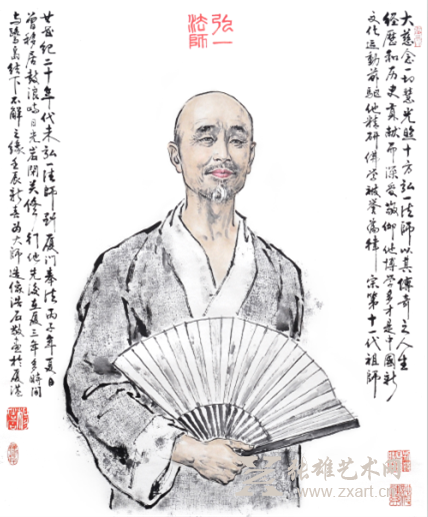 弘一
法師
大慈念一切慧光照十方弘一法師以其傳奇之人生
經歷和历史貢献而深受敬仰他博學多才是中國新
文化运動前驅他精研佛學被譽為律宗第十一代祖師
廿世紀二十年代末弘一法師到厦门奉法丙子年夏日
曾移居鼓浪嶼日光岩闭关修行他先後在厦三年多時间
与鹭島结下不解之缘壬辰新春为大师造像洪石敬画於厦港
雄艺术网
www.zxart.cn